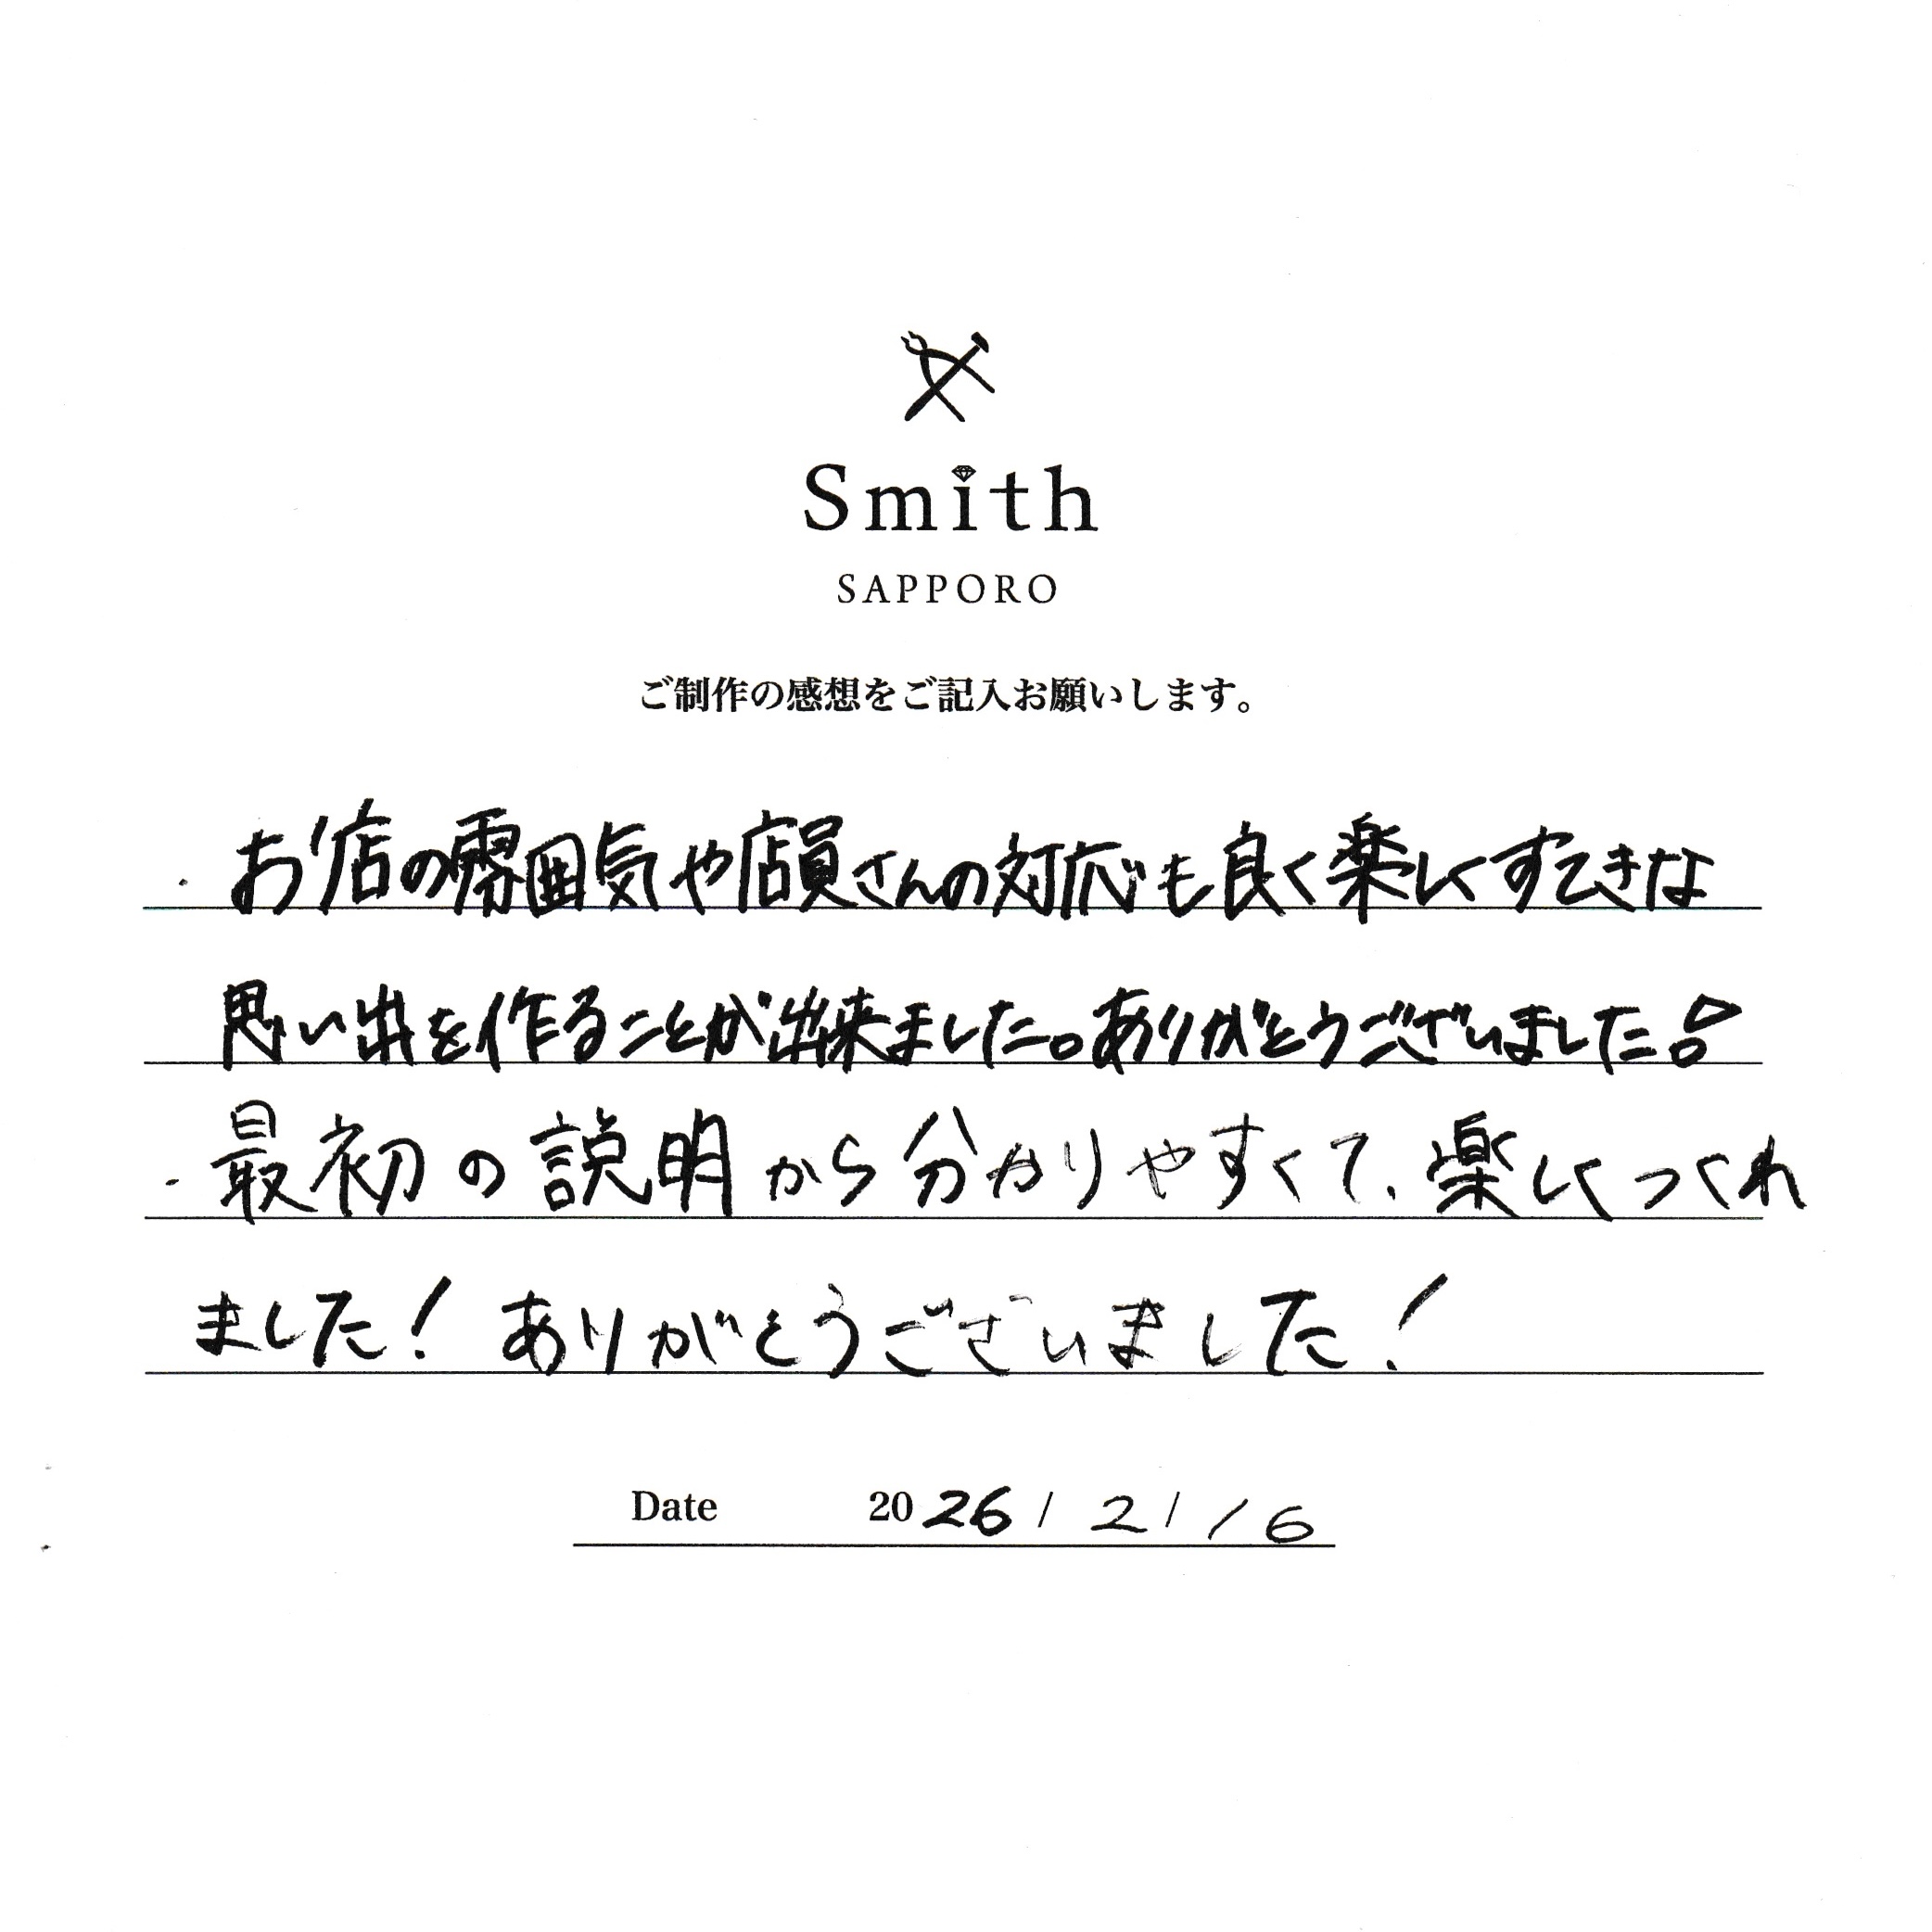 Smith
SAPPORO
ご制作の感想をご記入お願いします。
・お店の雰囲気や店員さんの対応も良く楽しくすてきな
思い出を作ることが出来ました。ありがとうございました!
・最初の説明から分かりやすくて、楽しくつくれ
ました!ありがとうございました!
Date 2026/2/16